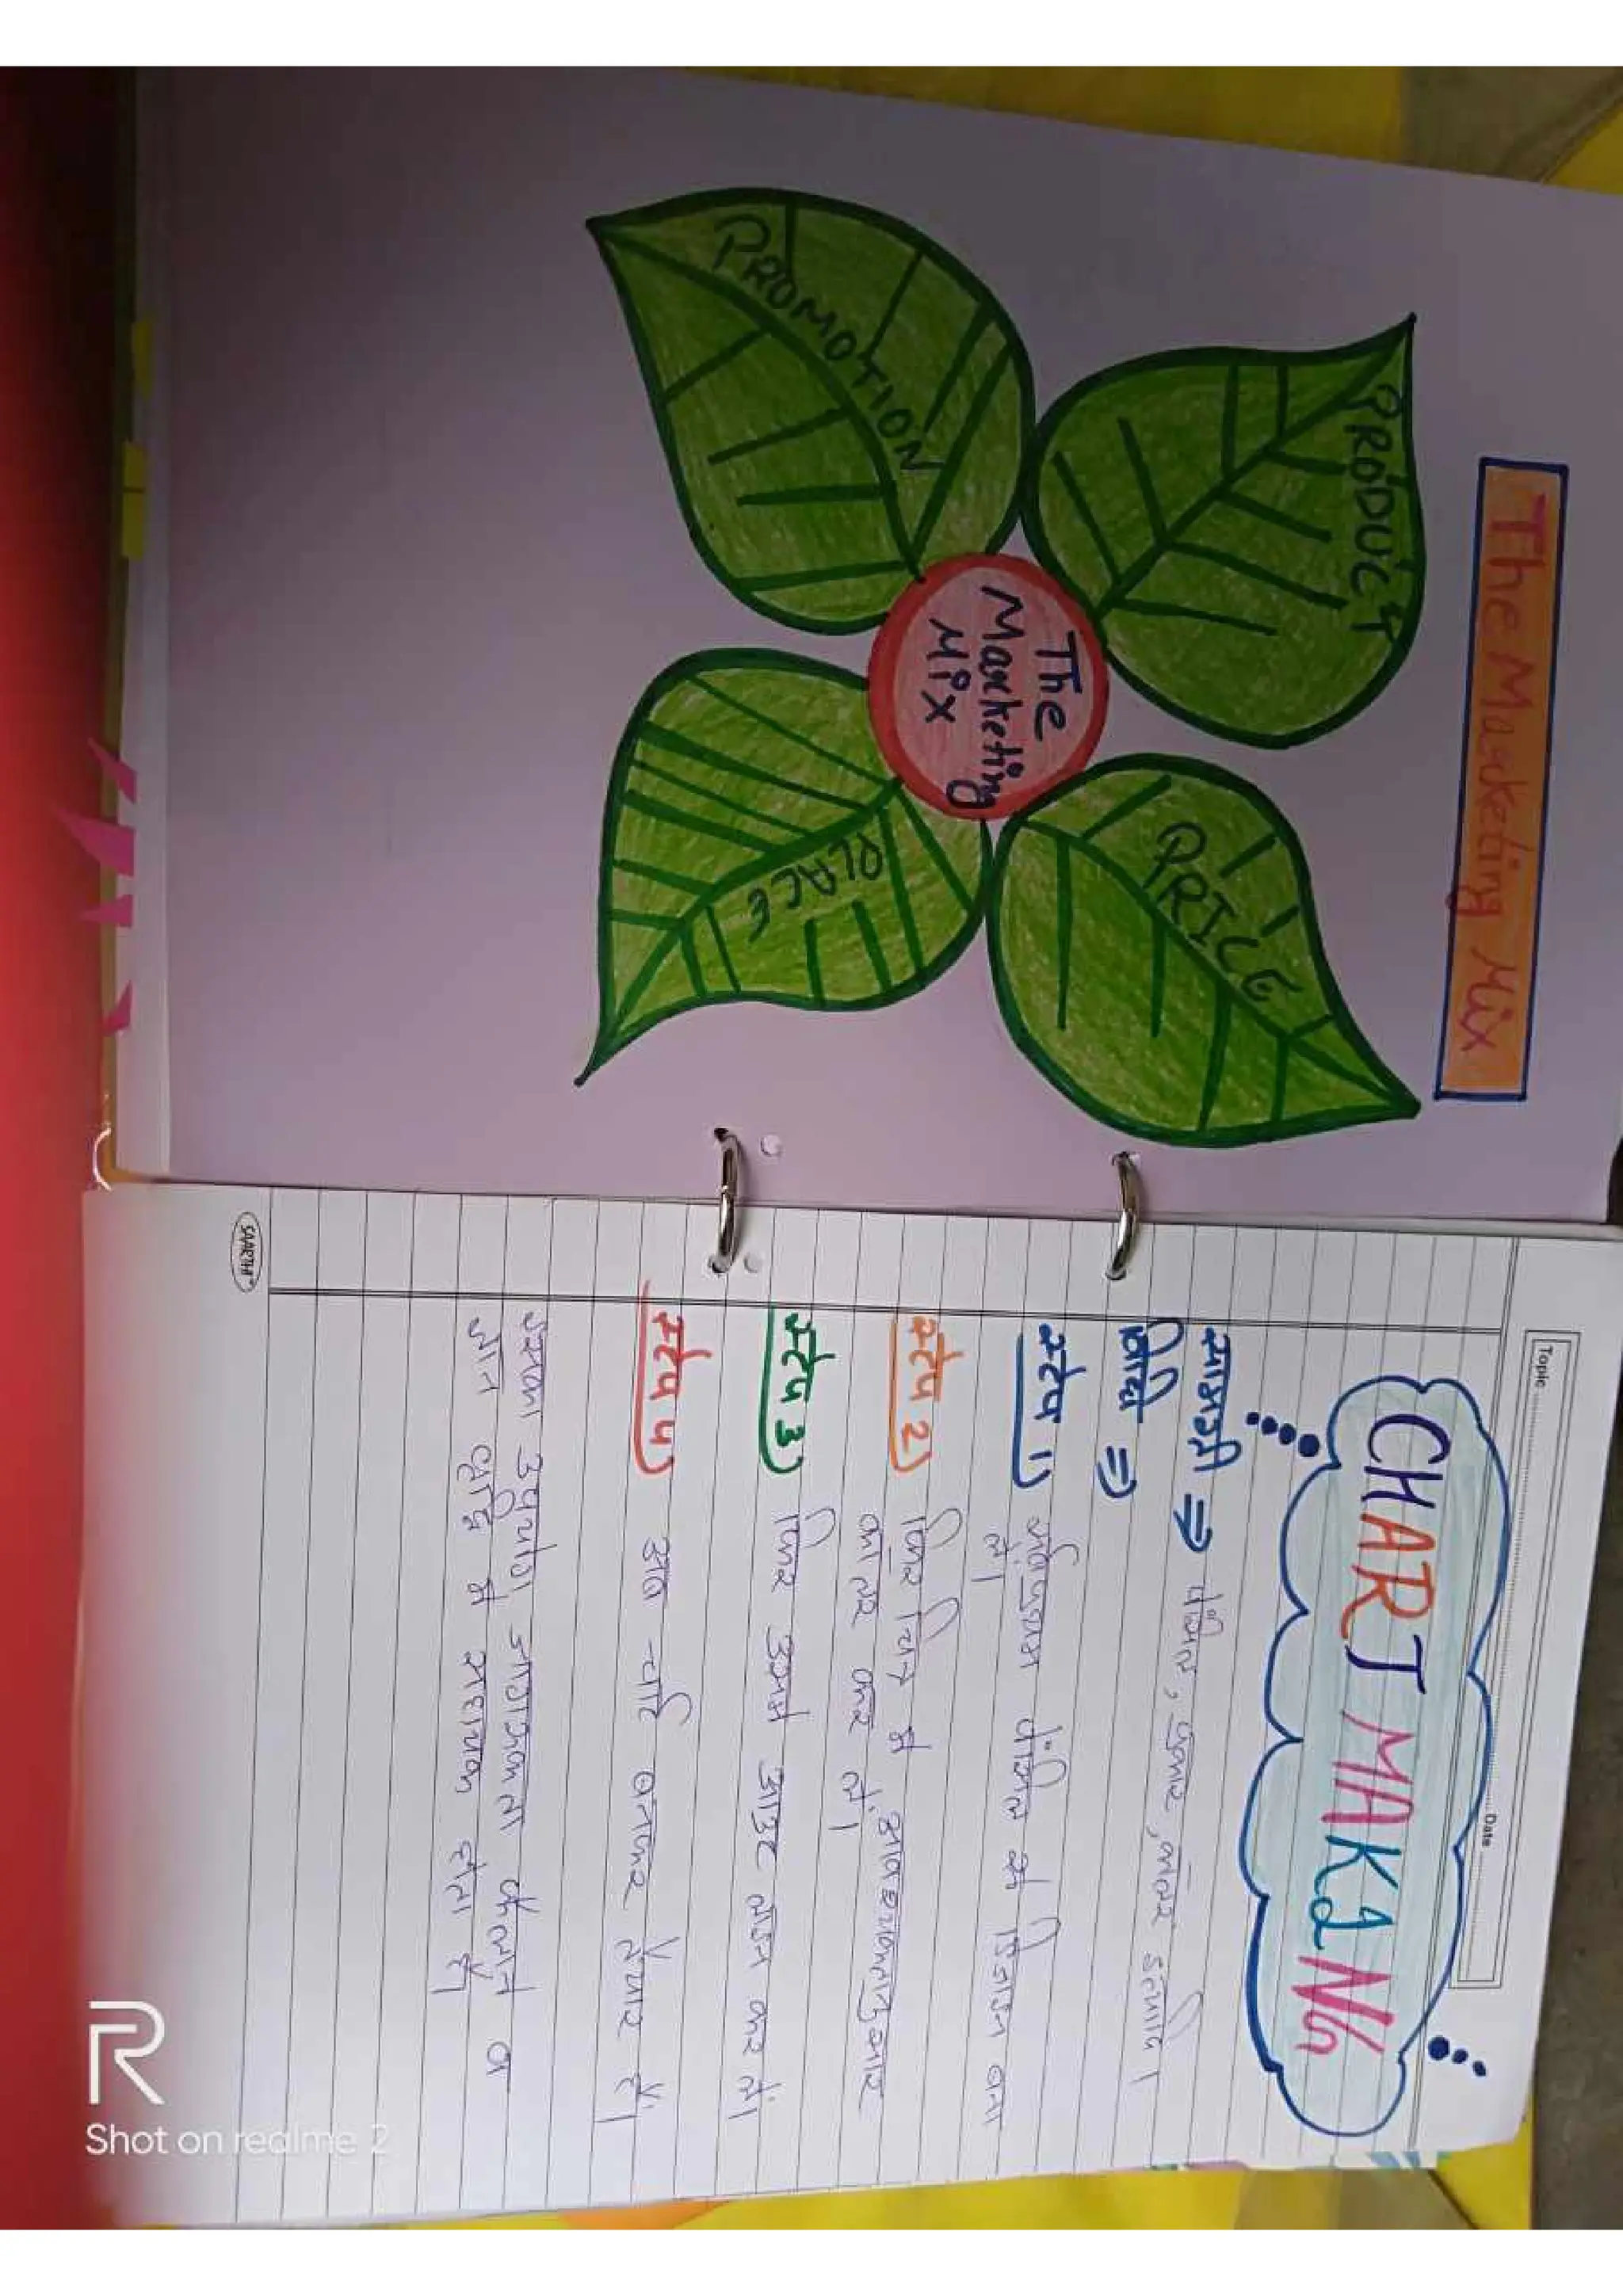 The Marketing Mix
PRODUCT
PRICE
PROMOTION
PLACE
The
Marketing
Mix
Topic
Date
CHART MAKING
सामग्री ⇒ पेंसिल, पुष्कर, कलर इत्यादि।
विधि ⇒
स्टेप 1) सर्वप्रथम पेंसिल से डिजाइन बना
लें।
स्टेप 2) फिर चित्र में आवश्यकतानुसार
कलर कर लें।
स्टेप 3) फिर उसमें आउट लाइन कर लें।
स्टेप 4) अब चार्ट बनकर तैयार है।
इसका उपयोग जागरूकता फैलाने व
ज्ञान वृद्धि में सहायक होता है।
SAARTHI
R
Shot on realme 2